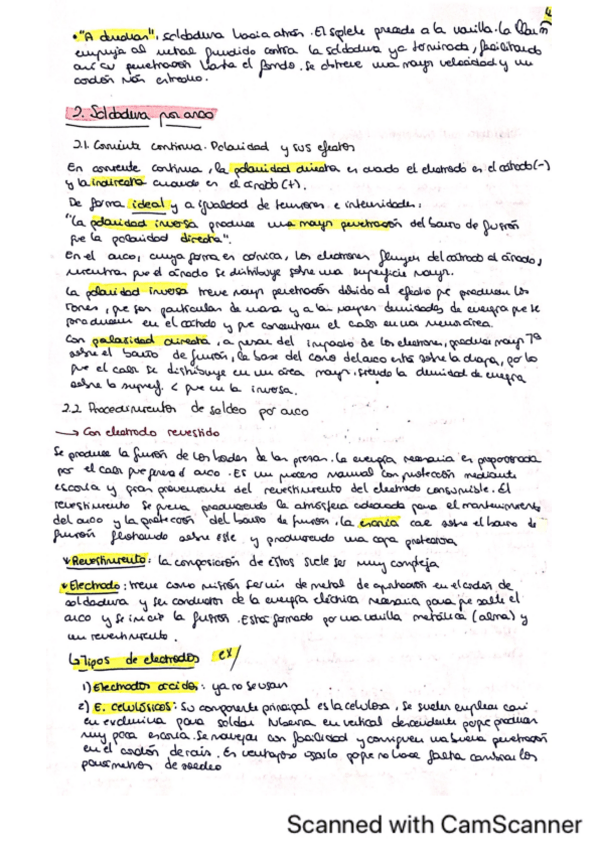 4
• "A derechas", soldadura hacia atrás. El soplete precede a la varilla. La llama
empuja al metal fundido contra la soldadura ya terminada, facilitando
así su penetración hasta el fondo. Se obtiene una mayor velocidad y un
cordón más estrecho.
2. Soldadura por arco
2.1. Corriente continua. Polaridad y sus efectos
En corriente continua, la polaridad directa es cuando el electrodo es el cátodo (-)
y la indirecta cuando es el ánodo (+).
De forma ideal y a igualdad de tensiones e intensidades:
"La polaridad inversa produce una mayor penetración del baño de fusión
que la polaridad directa".
En el arco, cuya forma es cónica, los electrones fluyen del cátodo al ánodo,
mientras que el ánodo se distribuye sobre una superficie mayor.
La polaridad inversa tiene mayor penetración debido al efecto que producen los
iones, que son partículas de masa y a las mayores densidades de energía que se
producen en el cátodo y que concentran el calor en una menor área.
Con polaridad directa, a pesar del impacto de los electrones, produce mayor Tª
sobre el baño de fusión, la base del cono del arco está sobre la chapa, por lo
que el calor se distribuye en un área mayor. Siendo la densidad de energía
sobre la superf. < que en la inversa.
2.2 Procedimientos de soldeo por arco
→ Con electrodo revestido
Se produce la fusión de los bordes de las piezas. La energía necesaria es proporcionada
por el calor que genera el arco. Es un proceso manual con protección mediante
escoria y gran provenientes del revestimiento del electrodo consumible. El
revestimiento se quema produciendo la atmósfera adecuada para el mantenimiento
del arco y la protección del baño de fusión. La escoria cae sobre el baño de
fusión flotando sobre este y produciendo una capa protectora
Revestimiento: la composición de éstos suele ser muy compleja
Electrodo: tiene como misión servir de metal de aportación en el cordón de
soldadura y ser conductor de la energía eléctrica necesaria para que salte el
arco y se inicie la fusión. Está formado por una varilla metálica (alma) y
un revestimiento.
↳ Tipos de electrodos ex/
1) Electrodos ácidos: ya no se usan
2) E. celulósicos: Su componente principal es la celulosa, se suelen emplear casi
en exclusiva para soldar tubería en vertical descendente porque producen
muy poca escoria. Se manejan con facilidad y consiguen una buena penetración
en el cordón de raíz. Es ventajoso usarlo porque no hace falta cambiar los
parámetros de soldeo
Scanned with CamScanner